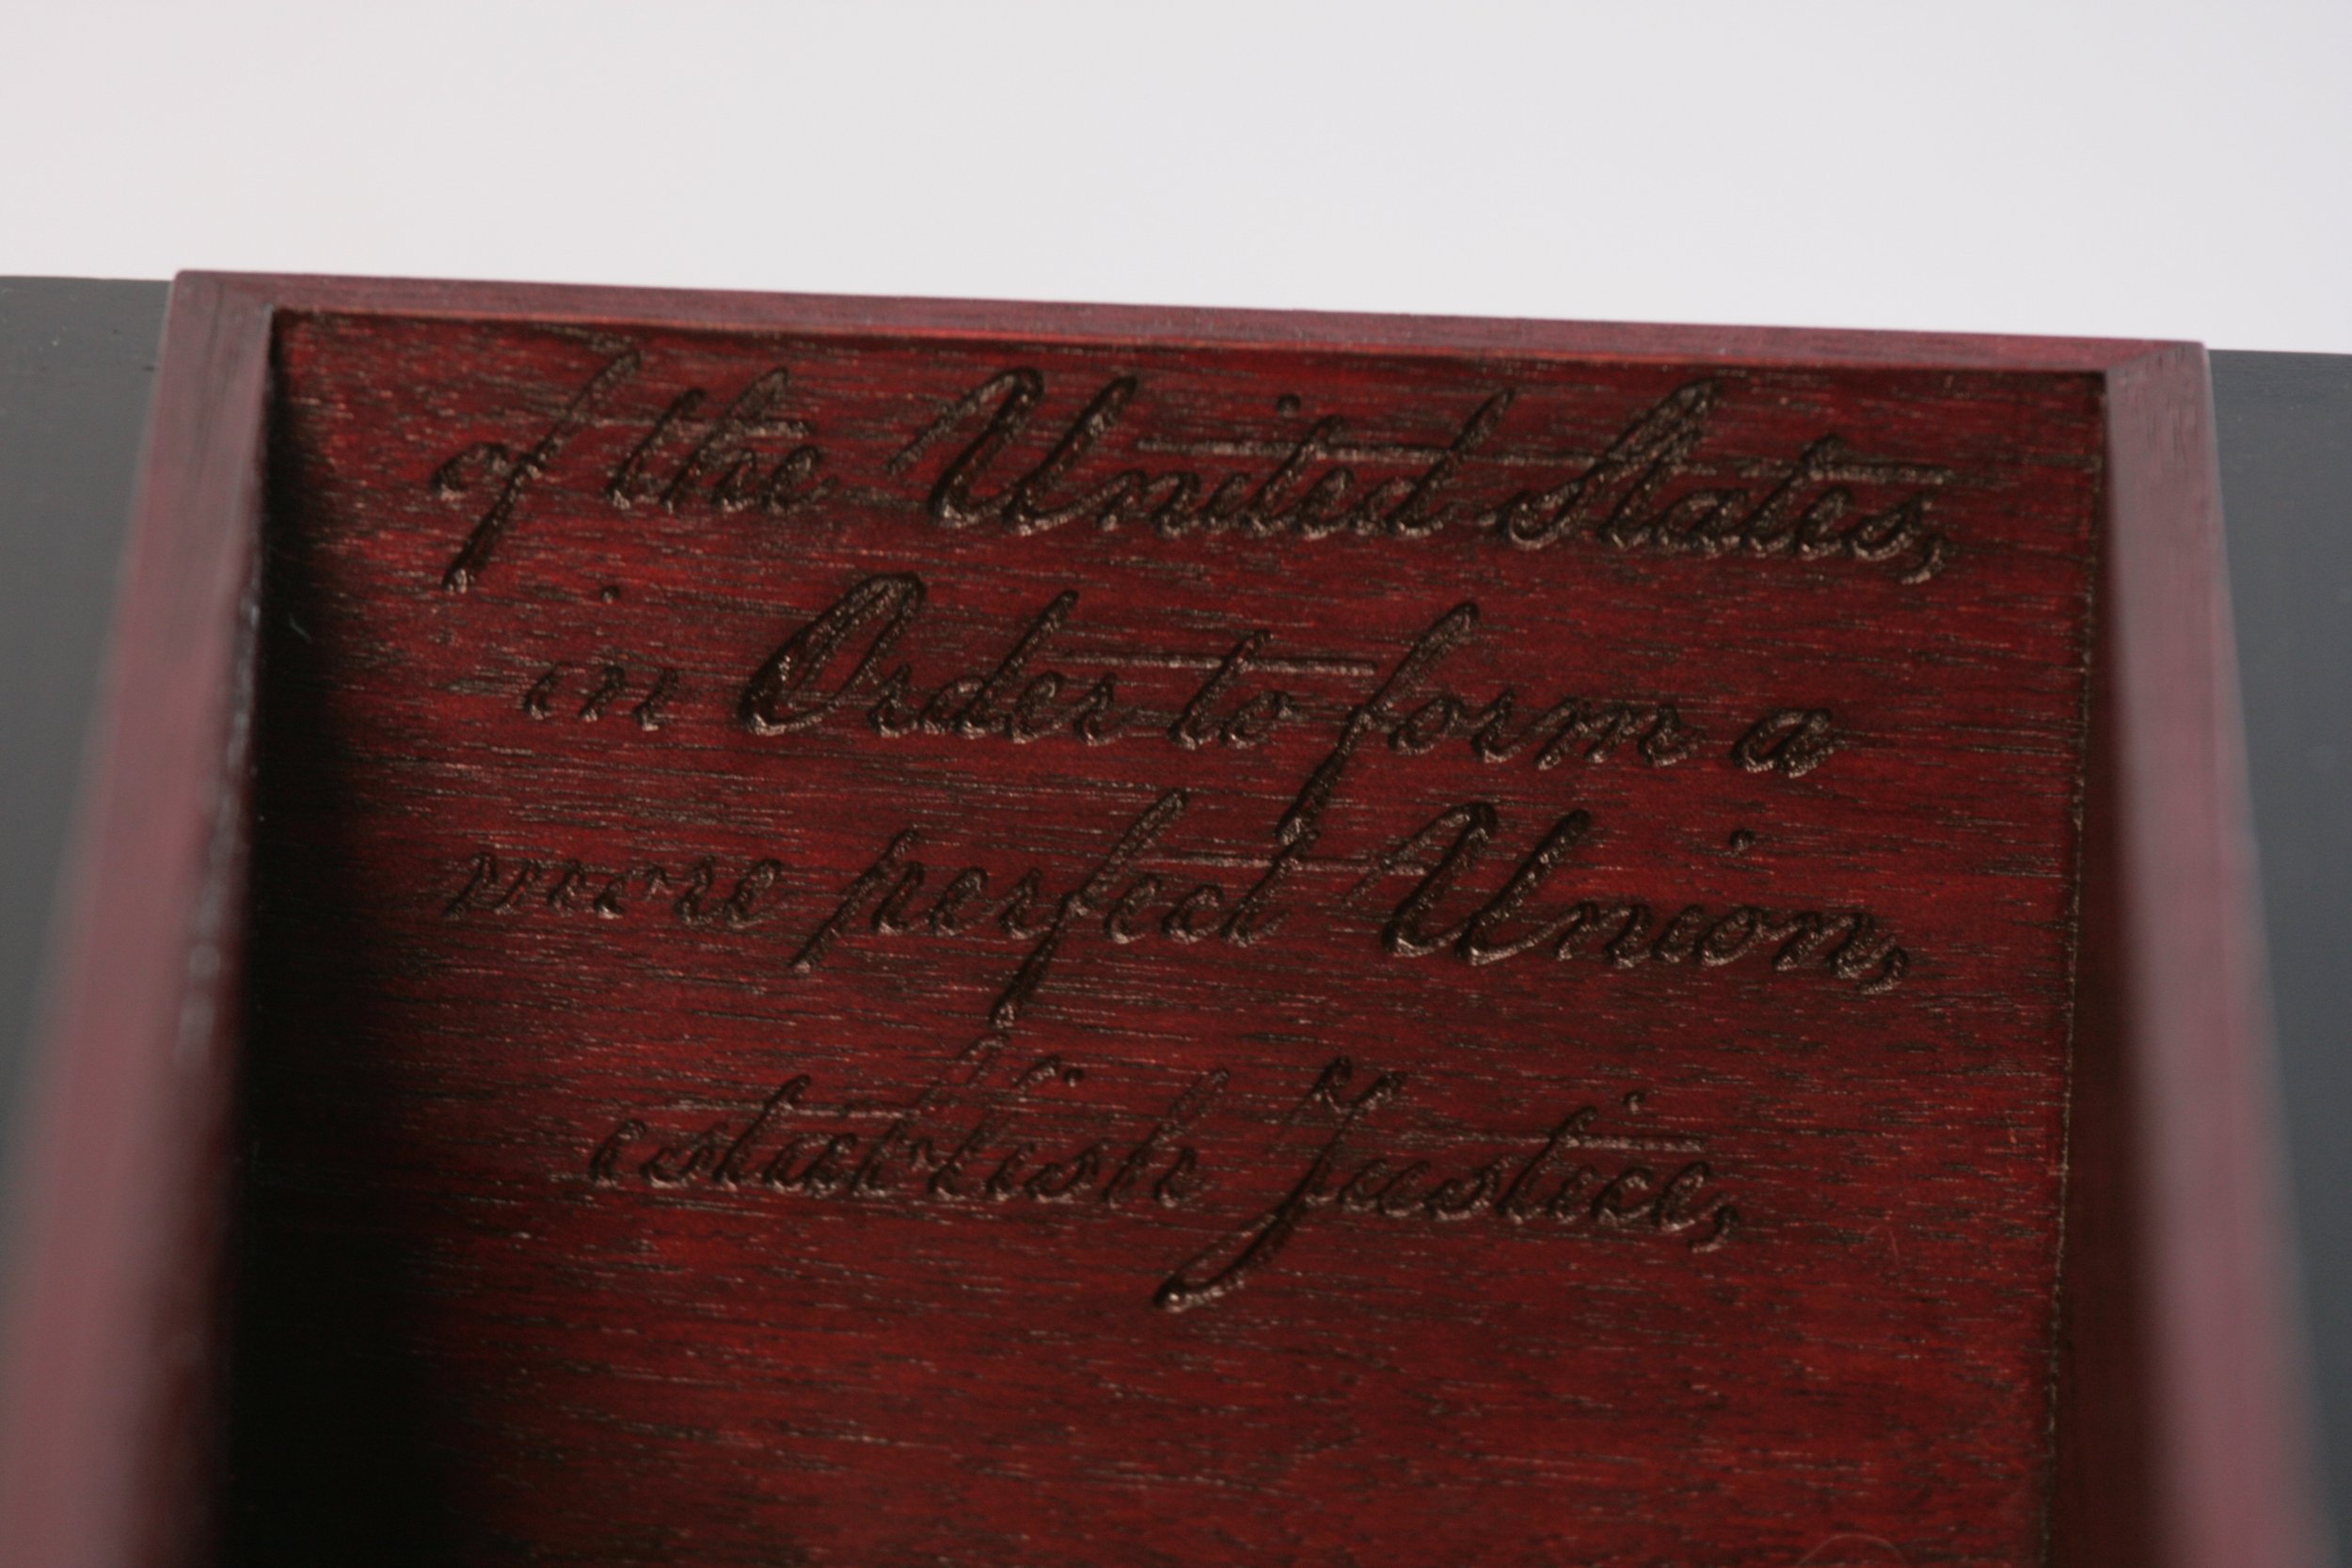 of the United States,
in Order to form a
more perfect Union,
establish Justice,